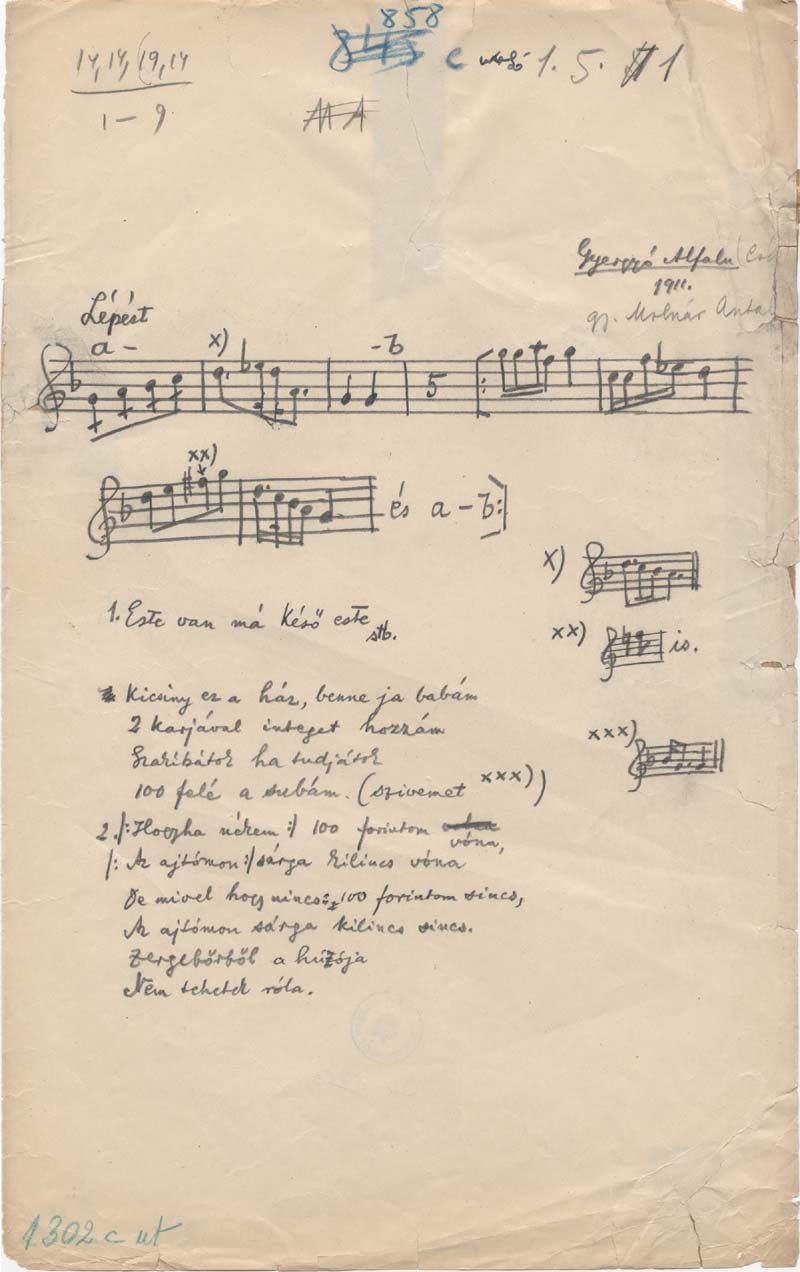 858
14, 14, (19, 14
1 – 9
c utolsó 1. 5. 1
Gyergyó Alfalu (
1911.
gy. Molnár Anta
Lépést
a –
x)
-b
5
xx)
és a – b :|
x)
1. Este van má késő este
stb.
xx) is.
Kicsiny ez a ház, benne ja babám
2 karjával integet hozzám
Szakibátok ha tudjátok
100 felé a subám. (szivemet xxx))
xxx)
2. /: Hogyha nékem :/ 100 forintom
vóna,
/: Az ajtómon :/ sárga kilincs vóna
De mivel hogy nincs 100 forintom sincs,
Az ajtómon sárga kilincs sincs.
Zergebőrből a húzója
Nem tehetek róla.
1302 c ut